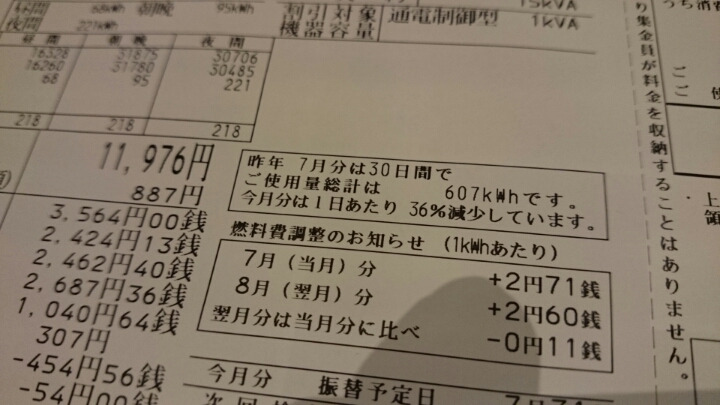 昼間 68kWh 朝晩 95kWh
夜間 221kWh
割引対象 通電制御型
機器容量 1kVA
15kVA
昼間 朝晩 夜間
16328 31875 30706
16260 31780 30485
68 95 221
218 218 218
11,976円
887円
3,564円00銭
2,424円13銭
2,462円40銭
2,687円36銭
1,040円64銭
307円
-454円56銭
-54円00銭
昨年 7月分は30日間で
ご使用量総計は 607kWhです。
今月分は1日あたり 36%減少しています。
燃料費調整のお知らせ (1kWhあたり)
7月(当月)分 +2円71銭
8月(翌月)分 +2円60銭
翌月分は当月分に比べ -0円11銭
今月分 振替予定日
り集金員が料金を収納することはありません。
うち消費